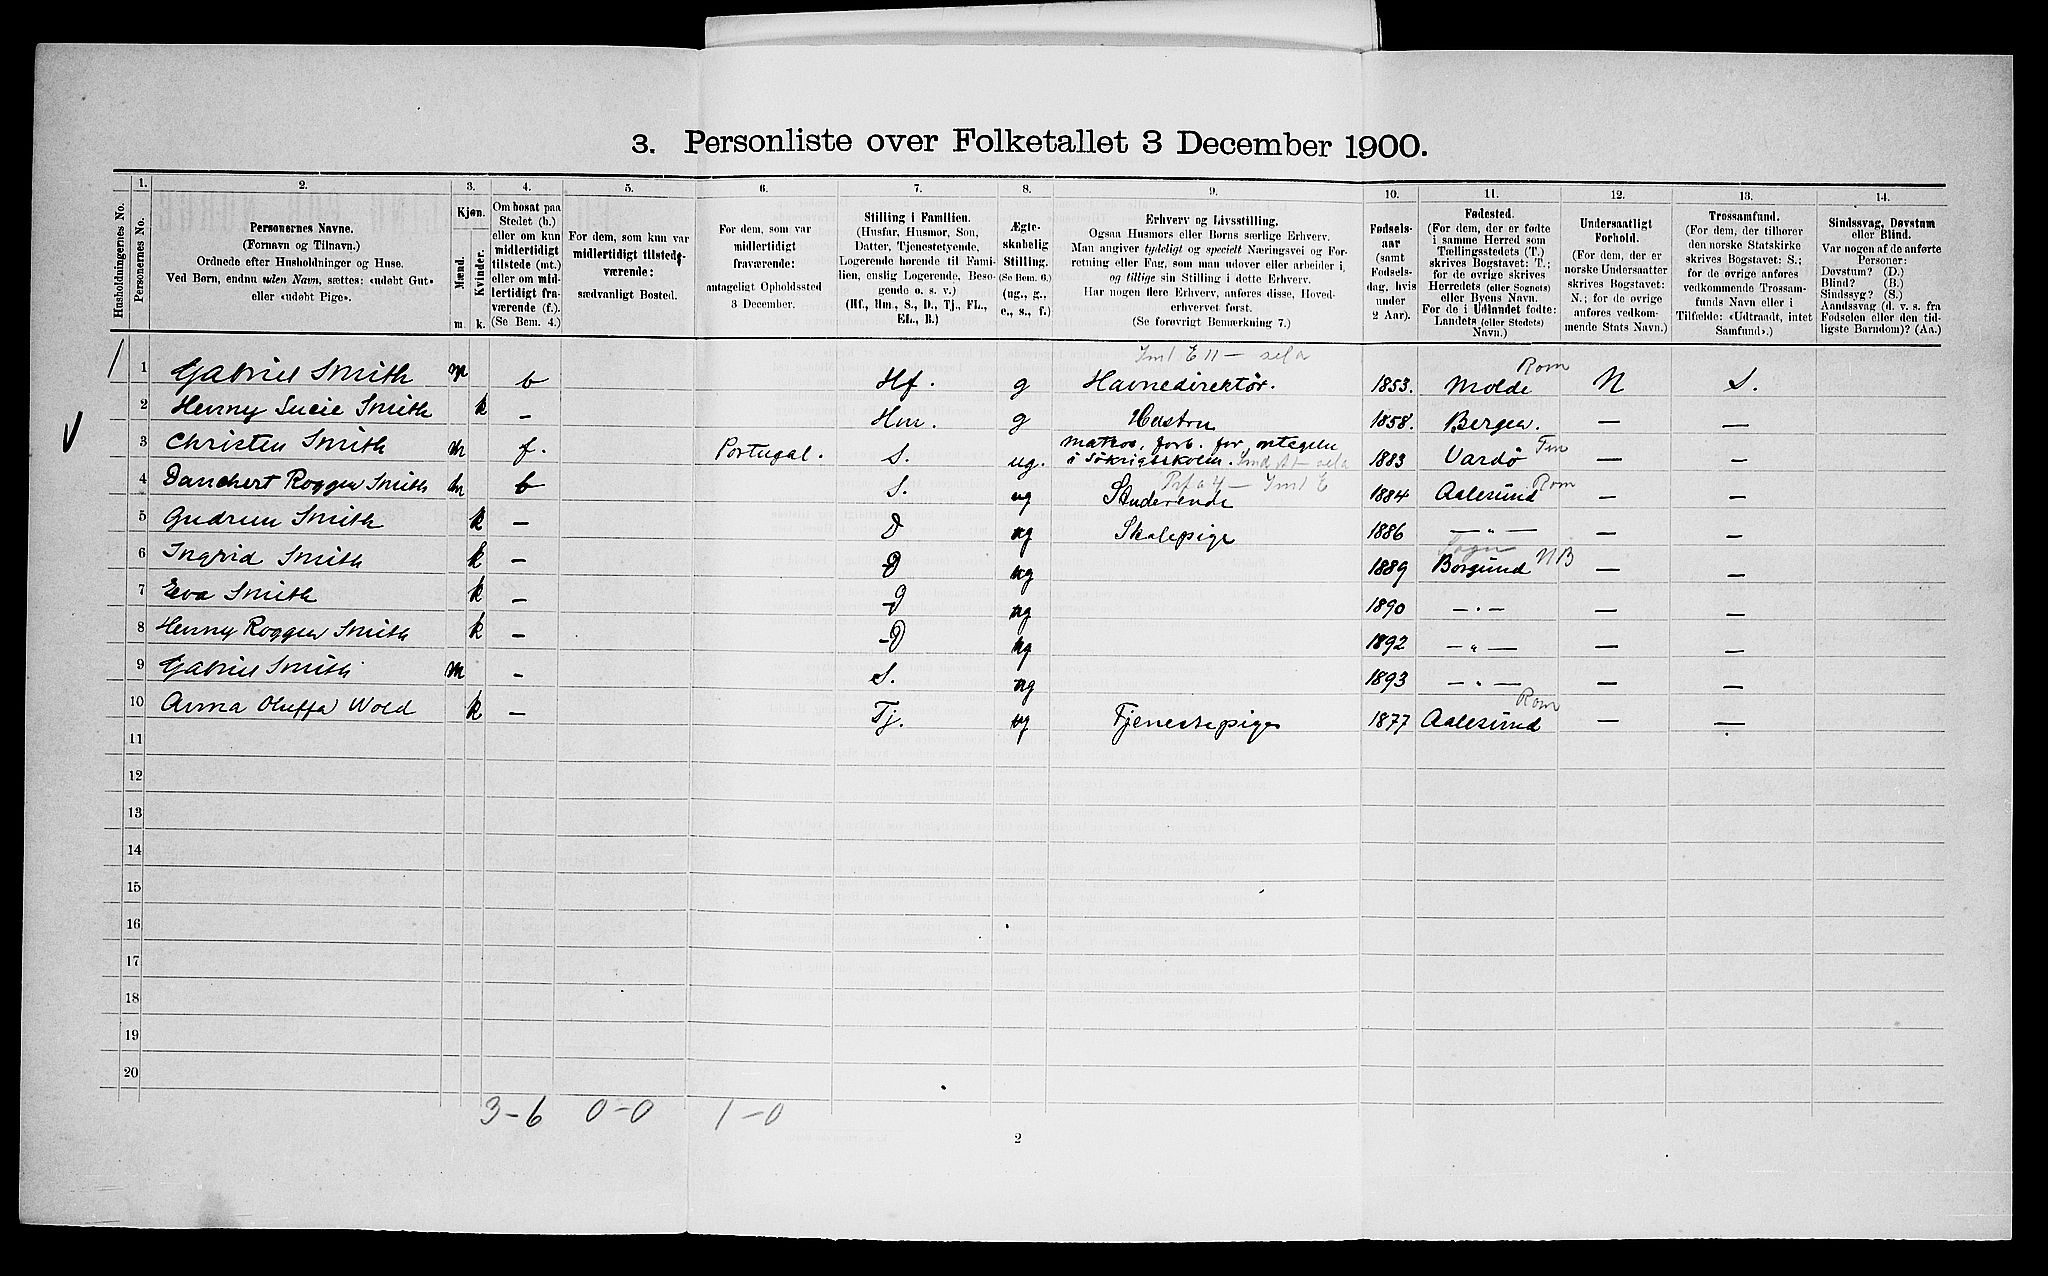 3. Personliste over Folketallet 3 December 1900.
Husholdningernes No.
1.
Personernes No.
2.
Personernes Navne.
(Fornavn og Tilnavn.)
Ordnede efter Husholdninger og Huse.
Ved Børn, endnu uden Navn, sættes: «udøbt Gut»
eller «udøbt Pige».
3.
Kjøn.
Mænd.
Kvinder.
m. k.
4.
Om bosat paa
Stedet (b.)
eller om kun
midlertidigt
tilstede (mt.)
eller om mid-
lertidigt fra-
værende (f.).
(Se Bem. 4.)
5.
For dem, som kun var
midlertidigt tilstede-
værende:
sædvanligt Bosted.
6.
For dem, som var
midlertidigt
fraværende:
antageligt Opholdssted
3 December.
7.
Stilling i Familien.
(Husfar, Husmor, Søn,
Datter, Tjenestetyende,
Logerende hørende til Fami-
lien, enslig Logerende, Besø-
gende o. s. v.)
(Hf., Hm., S., D., Tj., FL.,
EL., B.)
8.
Ægte-
skabelig
Stilling.
(Se Bem. 6.)
(ug., g.,
e., s., f.)
9.
Erhverv og Livsstilling.
Ogsaa Husmors eller Børns særlige Erhverv.
Man angiver tydeligt og specielt Næringsvei og For-
retning eller Fag, som man udøver eller arbeider i,
og tillige sin Stilling i dette Erhverv.
Har nogen flere Erhverv, anføres disse, Hoved-
erhvervet først.
(Se forøvrigt Bemærkning 7.)
10.
Fødsels-
aar
(samt
Fødsels-
dag, hvis
under
2 Aar).
11.
Fødested.
(For dem, der er fødte
i samme Herred som
Tællingsstedets (T.)
skrives Bogstavet: T.;
for de øvrige skrives
Herredets (eller Sognets)
eller Byens Navn.
For de i Udlandet fødte:
Landets (eller Stedets)
Navn.)
12.
Undersaatligt
Forhold.
(For dem, der er
norske Undersaatter
skrives Bogstavet:
N.; for de øvrige
anføres vedkom-
mende Stats Navn.)
13.
Trossamfund.
(For dem, der tilhører
den norske Statskirke
skrives Bogstavet: S.;
for de øvrige anføres
vedkommende Trossam-
funds Navn eller i
Tilfælde: «Udtraadt, intet
Samfund».)
14.
Sindssvag, Døvstum
eller Blind.
Var nogen af de anførte
Personer:
Døvstum? (D.)
Blind? (B.)
Sindssyg? (S.)
Aandssvag (d. v. s. fra
Fødselen eller den tid-
ligste Barndom)? (Aa.)
1 1 Gabriel Smith m b Hf. g Havnedirektør. 1853. Molde Rom N S.
2 Henny Lucie Smith k – Hm. g Hustru 1858. Bergen. — —
3 Christen Smith m f. Portugal. S. ug. matros, forb. for optagelse
å Søkrigsskolen. 1883 Vardø Fin — —
4 Danchert Roggen Smith m b S. ug Studerende 1884 Aalesund Rom — —
5 Gudrun Smith k – D ug Skolepige 1886 — " — — —
6 Ingrid Smith k – D ug 1889 Borgund NB — —
7 Eva Smith k – D ug 1890 — " — — —
8 Henny Roggen Smith k – D ug 1892 — " — — —
9 Gabriel Smith m – S. ug 1893 — " — — —
10 Anna Oluffa Wold k – Tj. ug Tjenestepige 1877 Aalesund Rom — —
11
12
13
14
15
16
17
18
19
20
3-6 0-0 1-0
2